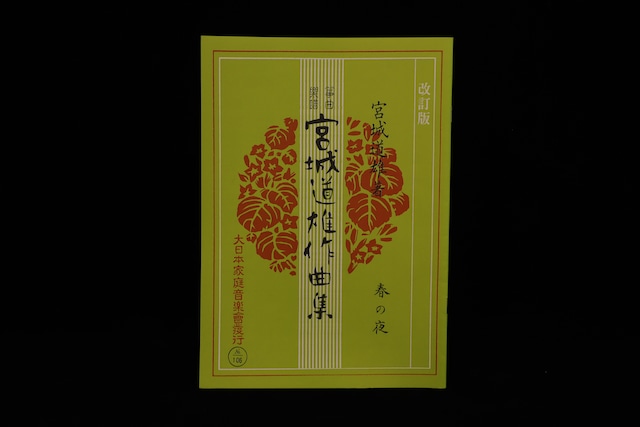 改訂版
宮城道雄著
春の夜
箏曲
樂譜
宮城道雄作曲集
大日本家庭音楽會發行
106